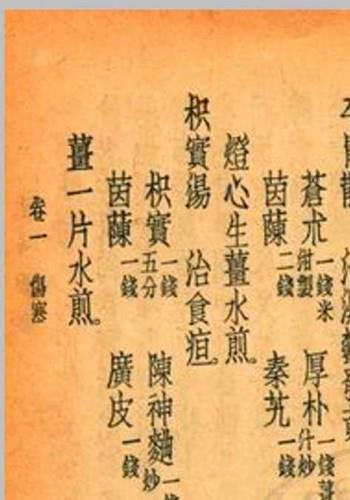 蒼朮一錢米泔製 厚朴一錢薑汁炒
茵蔯二錢 秦艽一錢
燈心生薑水煎。
枳實湯 治食疸。
枳實一錢五分 陳神麯炒一
茵蔯一錢 廣皮一錢
薑一片水煎。
卷一 傷寒